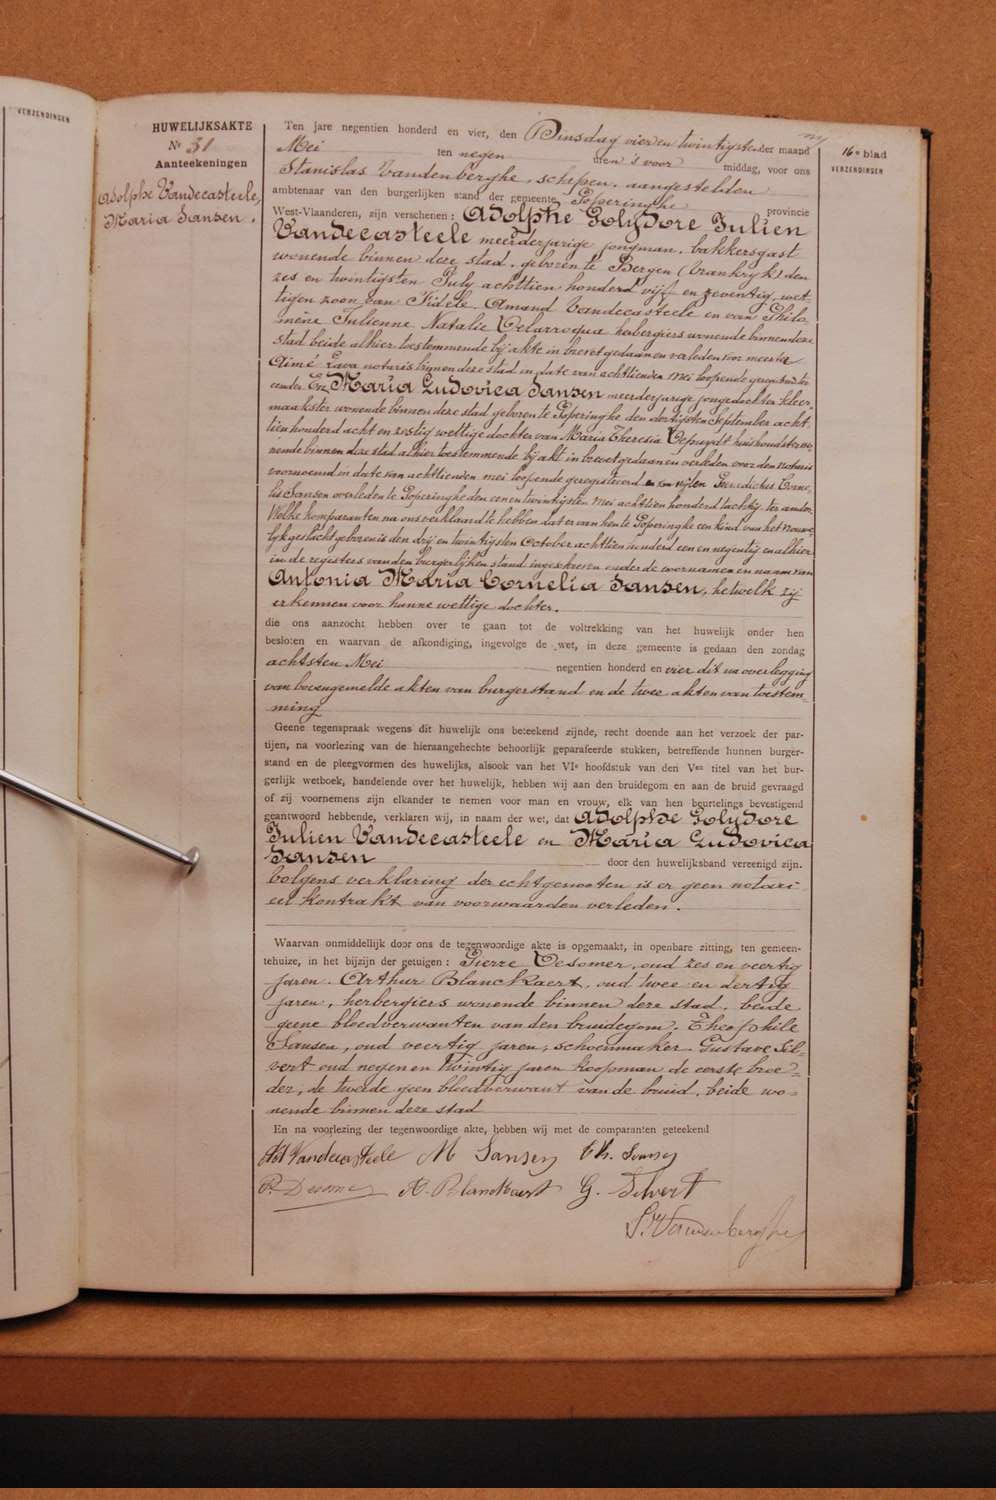 VERZENDINGEN
HUWELIJKSAKTE
Nr 31
Aanteekeningen
Adolphe Vandecasteele,
Maria Sansen.
16e blad
VERZENDINGEN
Ten jare negentien honderd en vier, den Dinsdag vier en twintigsten der maand
Mei ten negen uren 's voor middag, voor ons
Stanislas Vandenberghe, schepen, aangestelden
ambtenaar van den burgerlijken stand der gemeente Poperinghe provincie
West-Vlaanderen, zijn verschenen: Adolphe Polydore Julien
Vandecasteele meerderjarige jongman, bakkersgast
wonende binnen deze stad, geboren te Bergen (Frankrijk) den
zes en twintigsten July achttien honderd vijf en zeventig, wet-
tigen zoon van Fidele Amand Vandecasteele en van Philo-
mène Julienne Natalie Delarroqua herbergiers wonende binnen deze
stad beide alhier toestemmende bij akte in brevet gedaan en verleden voor meester
Aimé Lava notaris binnen deze stad in date van achttienden Mei loopende geregistreerd ter
eender En Maria Ludovica Sansen meerderjarige jongedochter kleer-
maakster wonende binnen deze stad geboren te Poperinghe den dertigsten September acht
tien honderd acht en zestig wettige dochter van Maria Theresia Depuydt huishoudster wo-
nende binnen deze stad alhier toestemmende bij akt in brevet gedaan en verleden voor den notaris
voornoemd in date van achttienden mei loopende geregistreerd en van wijlen Benedictus Corne-
lis Sansen overleden te Poperinghe den een en twintigsten Mei achttien honderd tachtig ter ander.
Welke komparanten na ons verklaard te hebben dat er van hen te Poperinghe een kind van het vrouwe-
lijk geslacht geboren is den drij en twintigsten October achttien honderd een en negentig en alhier
in de registers van den burgerlijken stand ingeschreven onder de voornamen en naam van
Antonia Maria Cornelia Sansen, hetwelk zij
erkennen voor hunne wettige dochter.
die ons aanzocht hebben over te gaan tot de voltrekking van het huwelijk onder hen
besloten en waarvan de afkondiging, ingevolge de wet, in deze gemeente is gedaan den zondag
achtsten Mei negentien honderd en vier dit na overlegging
van bovengemelde akten van burgerstand en de twee akten van toestem-
ming
Geene tegenspraak wegens dit huwelijk ons beteekend zijnde, recht doende aan het verzoek der par-
tijen, na voorlezing van de hieraangehechte behoorlijk geparafeerde stukken, betreffende hunnen burger-
stand en de pleegvormen des huwelijks, alsook van het VIe hoofdstuk van den Ven titel van het bur-
gerlijk wetboek, handelende over het huwelijk, hebben wij aan den bruidegom en aan de bruid gevraagd
of zij voornemens zijn elkander te nemen voor man en vrouw, elk van hen beurtelings bevestigend
geantwoord hebbende, verklaren wij, in naam der wet, dat Adolphe Polydore
Julien Vandecasteele en Maria Ludovica
Sansen door den huwelijksband vereenigd zijn.
Volgens verklaring der echtgenooten is er geen notari-
eel kontrakt van voorwaarden verleden.
Waarvan onmiddellijk door ons de tegenwoordige akte is opgemaakt, in openbare zitting, ten gemeen-
tehuize, in het bijzijn der getuigen: Pierre Desomer, oud zes en veertig
jaren, Arthur Blanckaert, oud twee en dertig
jaren, herbergiers wonende binnen deze stad, beide
geene bloedverwanten van den bruidegom. Theophile
Sansen, oud veertig jaren, schoenmaker, Gustave Sil-
vert oud negen en twintig jaren koopman de eerste broe-
der, de tweede geen bloedverwant van de bruid, beide wo-
nende binnen deze stad
En na voorlezing der tegenwoordige akte, hebben wij met de comparanten geteekend
Ad Vandecasteele M Sansen Th. Sansen
P. Desomer A. Blanckaert G. Silvert
S. Vandenberghe